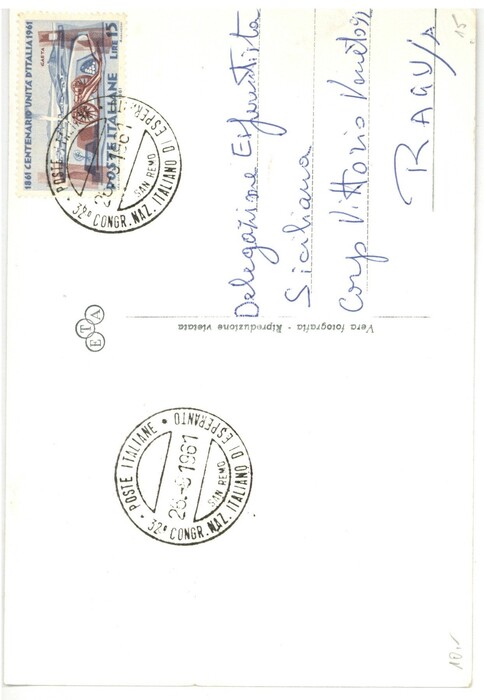 1861 CENTENARIO UNITÀ D'ITALIA 1961
GAETA
POSTE ITALIANE
LIRE 15
POSTE ITALIANE • 32º CONGR. NAZ. ITALIANO DI ESPERANTO
SAN REMO
1961
15.
Delegazione Esperantista
Siciliana
Corso Vittorio Veneto
RAGUSA
Vera fotografia - Riproduzione vietata
ETA
POSTE ITALIANE • 32º CONGR. NAZ. ITALIANO DI ESPERANTO
SAN REMO
1961
10.-